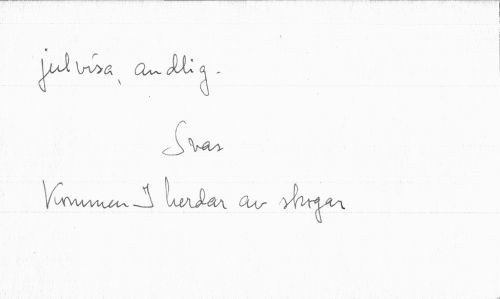 julvisa, andlig.
Svar
Kommen I herdar av skogar